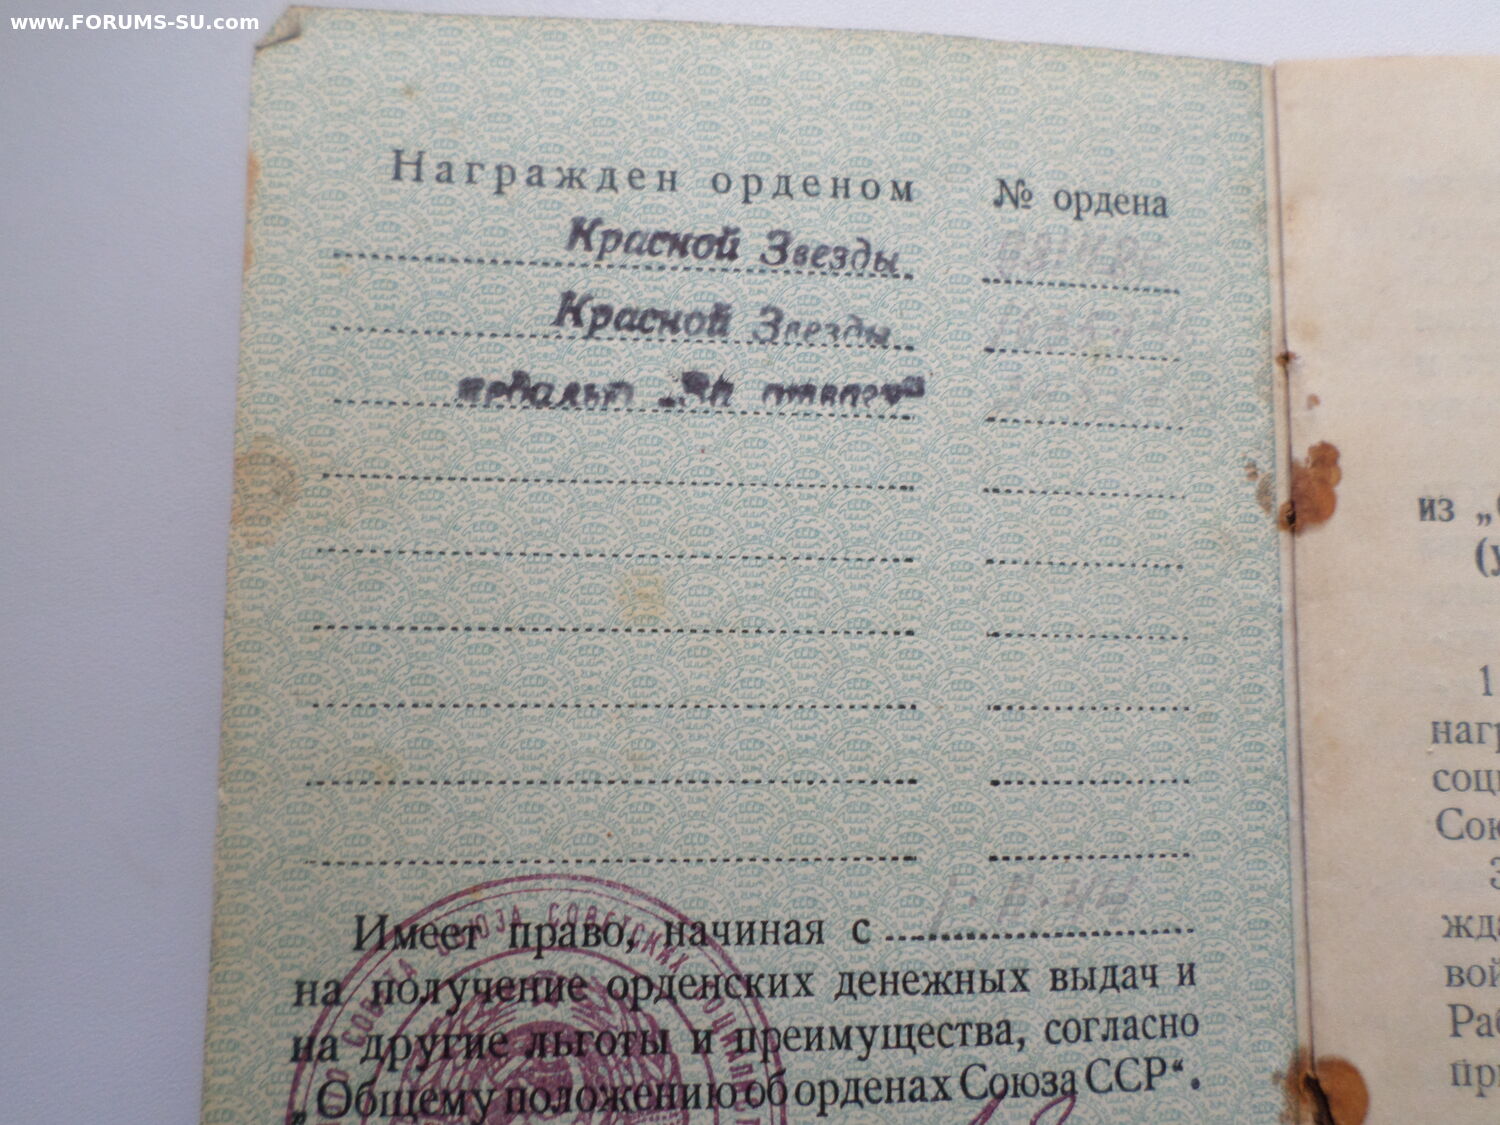 www.FORUMS-SU.com
Награжден орденом № ордена
Красной Звезды
Красной Звезды
медалью „За отвагу“
Имеет право, начиная с 1·II·44
на получение орденских денежных выдач и
на другие льготы и преимущества, согласно
„Общему положению об орденах Союза ССР“.
СОВЕТА СОЮЗА СОВЕТСКИХ
из „
(у
1
наг
соц
Сою
З
жда
вой
Раб
при